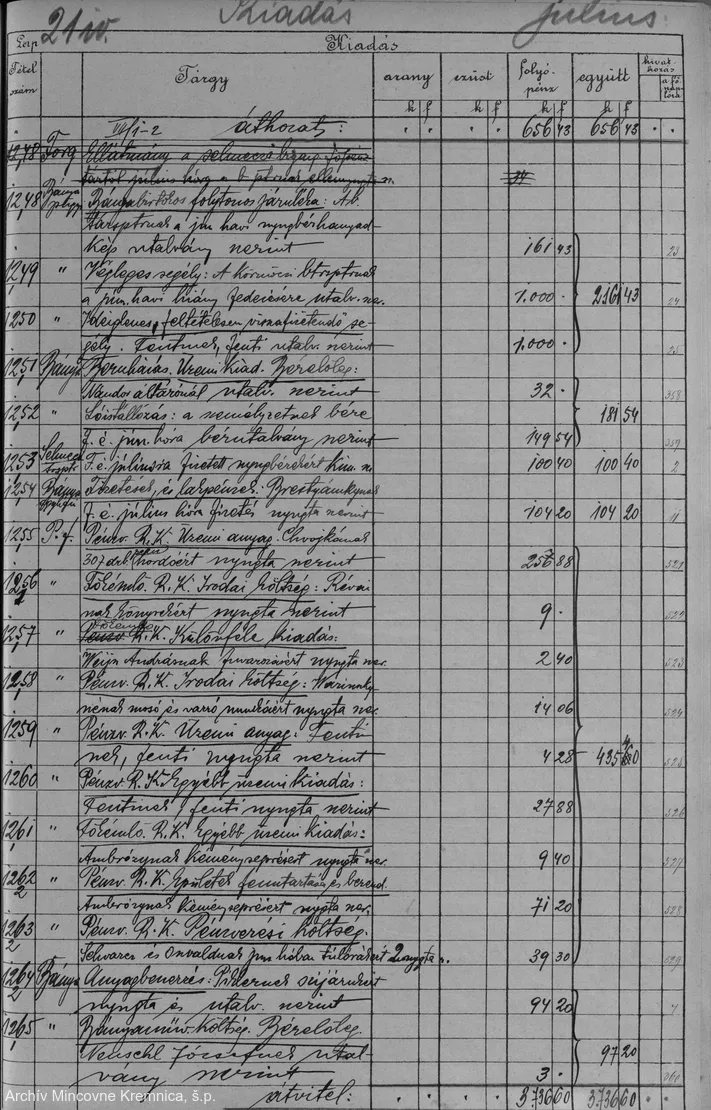 Kiadás július.
Lap 21 iv. Kiadás
Tétel szám Tárgy arany ezüst folyó- pénz együtt hivat- kozás a fő- nap- lóra
k f k f k f k f
VII/1-2 áthozat: 656 43 656 43
1248 Forg
tártól július hóra a
1248 Bánya Bányabirtokos folytonos járuléka: A b.
társptnak a jun. havi nyugbérhányad-
kép utalvány szerint 161 43 23
1249 " Végleges segély: A Körmöczi btrsptnak
a jun. havi hiány fedezésére utalv. sz. 1.000 . 2161 43 24
1250 " Ideiglenes, feltételesen visszafizetendő se-
gély. Fentinek, fenti utalv. szerint 1.000 . 25
1251 Bánya Üzemi Kiad. Bérelőleg:
Nándor altárónál utalv. szerint 32 . 358
1252 " a személyzetnek bére 181 54
F. é. jun. hóra bérutalvány szerint 149 54 359
1253 Selmecz F. é. júliusra fizetett nyugbérekért kim. sz. 100 40 100 40 2
1254 Bánya Fizetések, és lakpénzek: Brestyánszkynak
F. é. július hóra fizetés nyugta szerint 104 20 104 20 11
1255 P. f. Pénzv. R. K. Üzemi anyag. Chvojkának
307 drb. hordóért nyugta szerint 256 88 521
1256 " Főkémlő. R. K. Irodai költség: Révai
nak könyvekért nyugta szerint 9 . 522
1257 " R. K. Különféle kiadás:
Andrásnak fuvarozásért nyugta szer. 2 40 523
1258 " Pénzv. R. K. Irodai költség:
nének mosó és varró munkáért nyugta sz. 14 06 524
1259 " Pénzv. R. K. Üzemi anyag: Fenti
nek, fenti nyugta szerint 4 28 435 525
1260 " Pénzv. R. K. Egyébb üzemi kiadás:
Fentinek, fenti nyugta szerint 27 88 526
1261 " Főkémlő. R. K. Egyébb üzemi kiadás:
Ambrózynak kéményseprésért nyugta szer. 9 40 527
1262 " Pénzv. R. K. Épületek fenntartása és berend.
Ambrózynak kéményseprésért nyugta sz. 71 20 528
1263 " Pénzv. R. K. Pénzverési költség.
Schwarcz és Onvaldnak jun. hóban túlórákért 2 nyugta sz. 39 30 529
1264 Bánya Anyagbeszerzés:
nyugta és utalv. szerint 94 20 7
1265 " Bányaműv. költség. Bérelőleg.
Neuschl Józsefnek utal- 97 20
vány szerint 3 . 360
átvitel: 3.736 60 3.736 60
Archív Mincovne Kremnica, š.p.